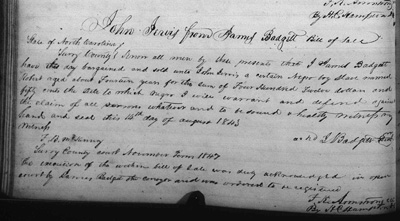 John Jarvis from James Badgett Bill of Sale
State of North Carolina
Surry County Know all men by these presents that I James Badgett
have this day bargained and sold unto John Jarvis a certain Negro boy Slave named
Robert aged about fourteen years for the sum of Four Hundred Twelve dollars and
fifty cents the title to which Negro I will warrant and defend against
the claim of all persons whatever and to be sound & healthy Witness my
hand and seal this 14th day of August 1843
Witness
Surry County Court November Term 1847
the execution of the within bill of sale was duly acknowledged in open
court by James Badgett the and was ordered to be registered
F. K. Armstrong